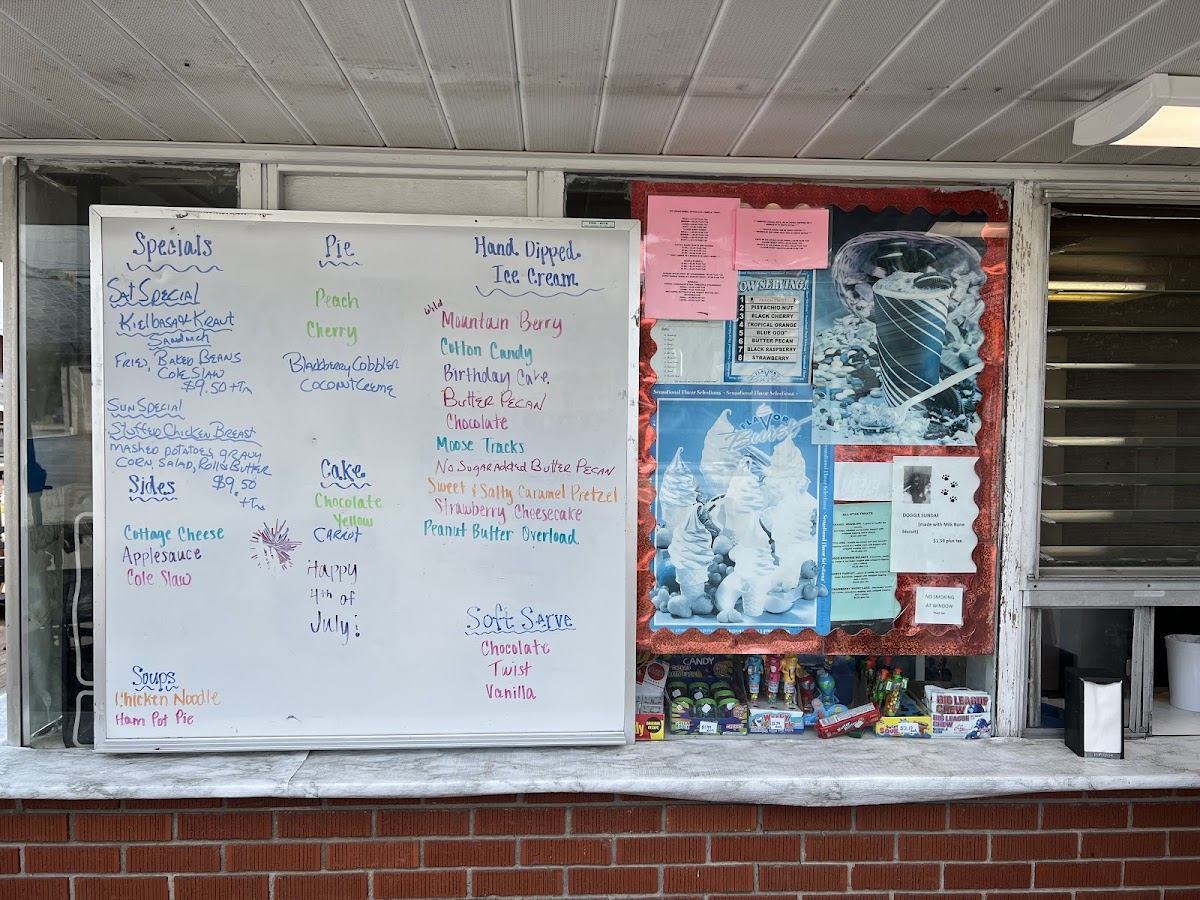 Specials
SAT SPECIAL
Kielbasa & Kraut
Sandwich
Fries, Baked Beans
Cole Slaw
$9.50 + Tax
SUN SPECIAL
Stuffed Chicken Breast
mashed potatoes gravy
corn, salad, Roll & Butter
$9.50
+ Tax
Sides
Cottage Cheese
Applesauce
Cole Slaw
Soups
Chicken Noodle
Ham Pot Pie
Pie
Peach
Cherry
Blackberry Cobbler
Coconut Creme
Cake
Chocolate
Yellow
Carrot
Happy
4th of
July!
Hand Dipped
Ice Cream
Wild
Mountain Berry
Cotton Candy
Birthday Cake
Butter Pecan
Chocolate
Moose Tracks
No Sugar Added Butter Pecan
Sweet & Salty Caramel Pretzel
Strawberry Cheesecake
Peanut Butter Overload
Soft Serve
Chocolate
Twist
Vanilla
OW SERVING!
1
2 PISTACHIO NUT
3 BLACK CHERRY
4 TROPICAL ORANGE
5 BLUE GOO
6 BUTTER PECAN
7 BLACK RASPBERRY
8 STRAWBERRY
FLAVOR
Burst
Sensational Flavor Selections ~ Sensational Flavor Selections ~
FLAVOR
Burst
DOGGIE SUNDAE
(made with Milk Bone
Biscuit)
$1.50 plus tax
NO SMOKING
AT WINDOW
CANDY
BIG LEAGUE
CHEW
BIG LEAGUE
CHEW